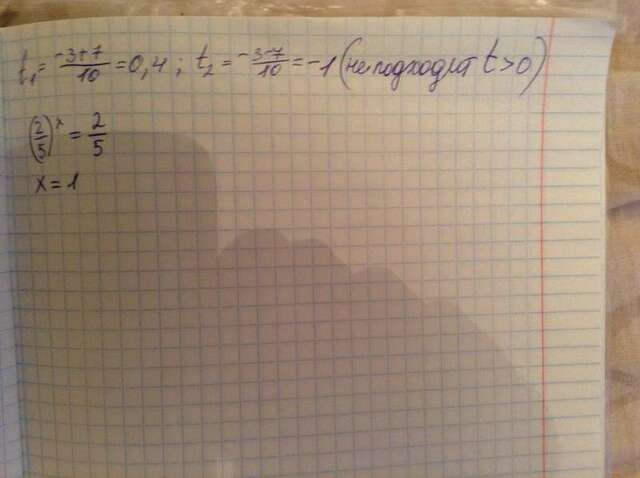 t₁ = (-3+7)/10 = 0,4 ; t₂ = (-3-7)/10 = -1 (не подходит t>0)
(2/5)ˣ = 2/5
x = 1